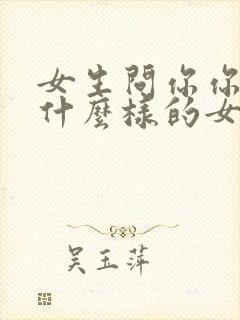 女生問你你
什麼樣的女
吴玉萍